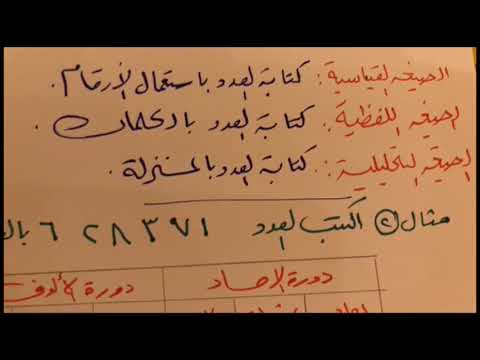 الصيغه القياسية : كتابة العدد باستعمال الأرقام .
الصيغه اللفظية : كتابة العدد بالكلمات .
الصيغه التحليلية : كتابة العدد بالمنزلة
مثال ② اكتب العدد ٦٢٨٣٧١
دورة الاحاد دورة الألوف
احاد